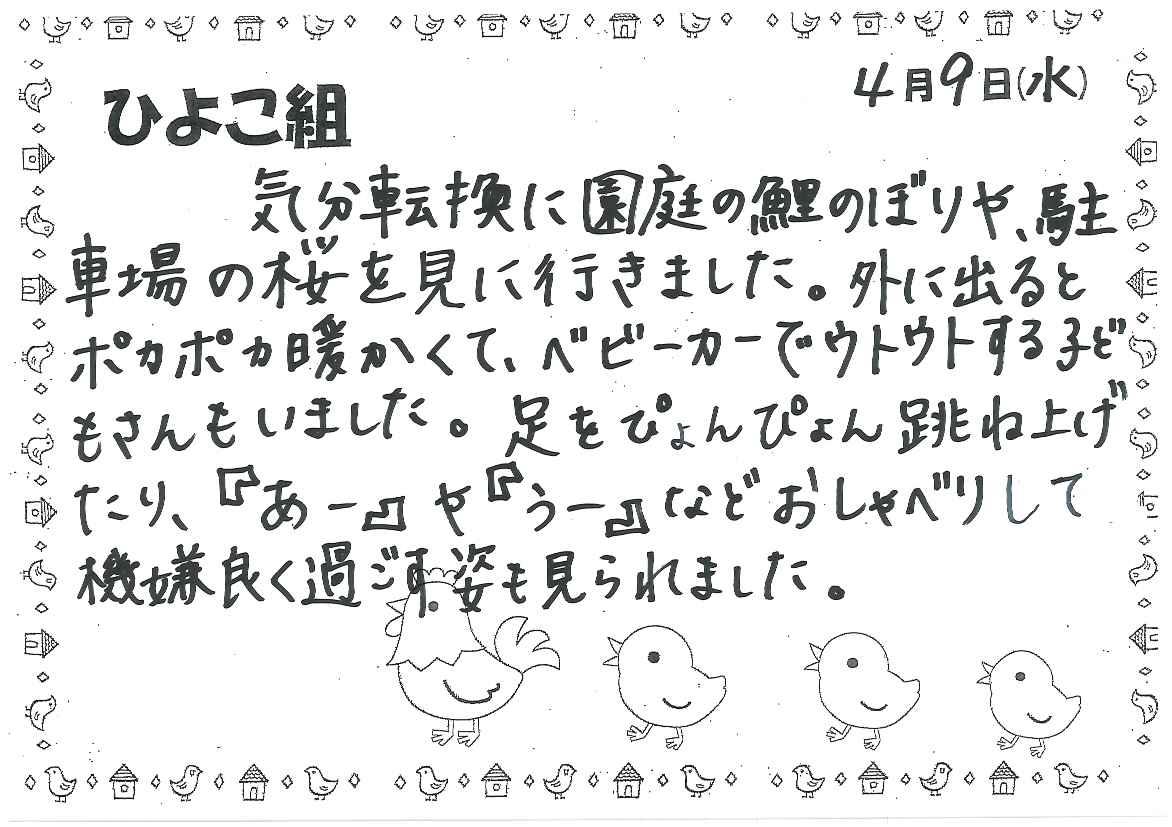 4月9日(水)
ひよこ組
気分転換に園庭の鯉のぼりや、駐
車場の桜を見に行きました。外に出ると
ポカポカ暖かくて、ベビーカーでウトウトする子ど
もさんもいました。足をぴょんぴょん跳ね上げ
たり、『あー』や『うー』などおしゃべりして
機嫌良く過ごす姿も見られました。